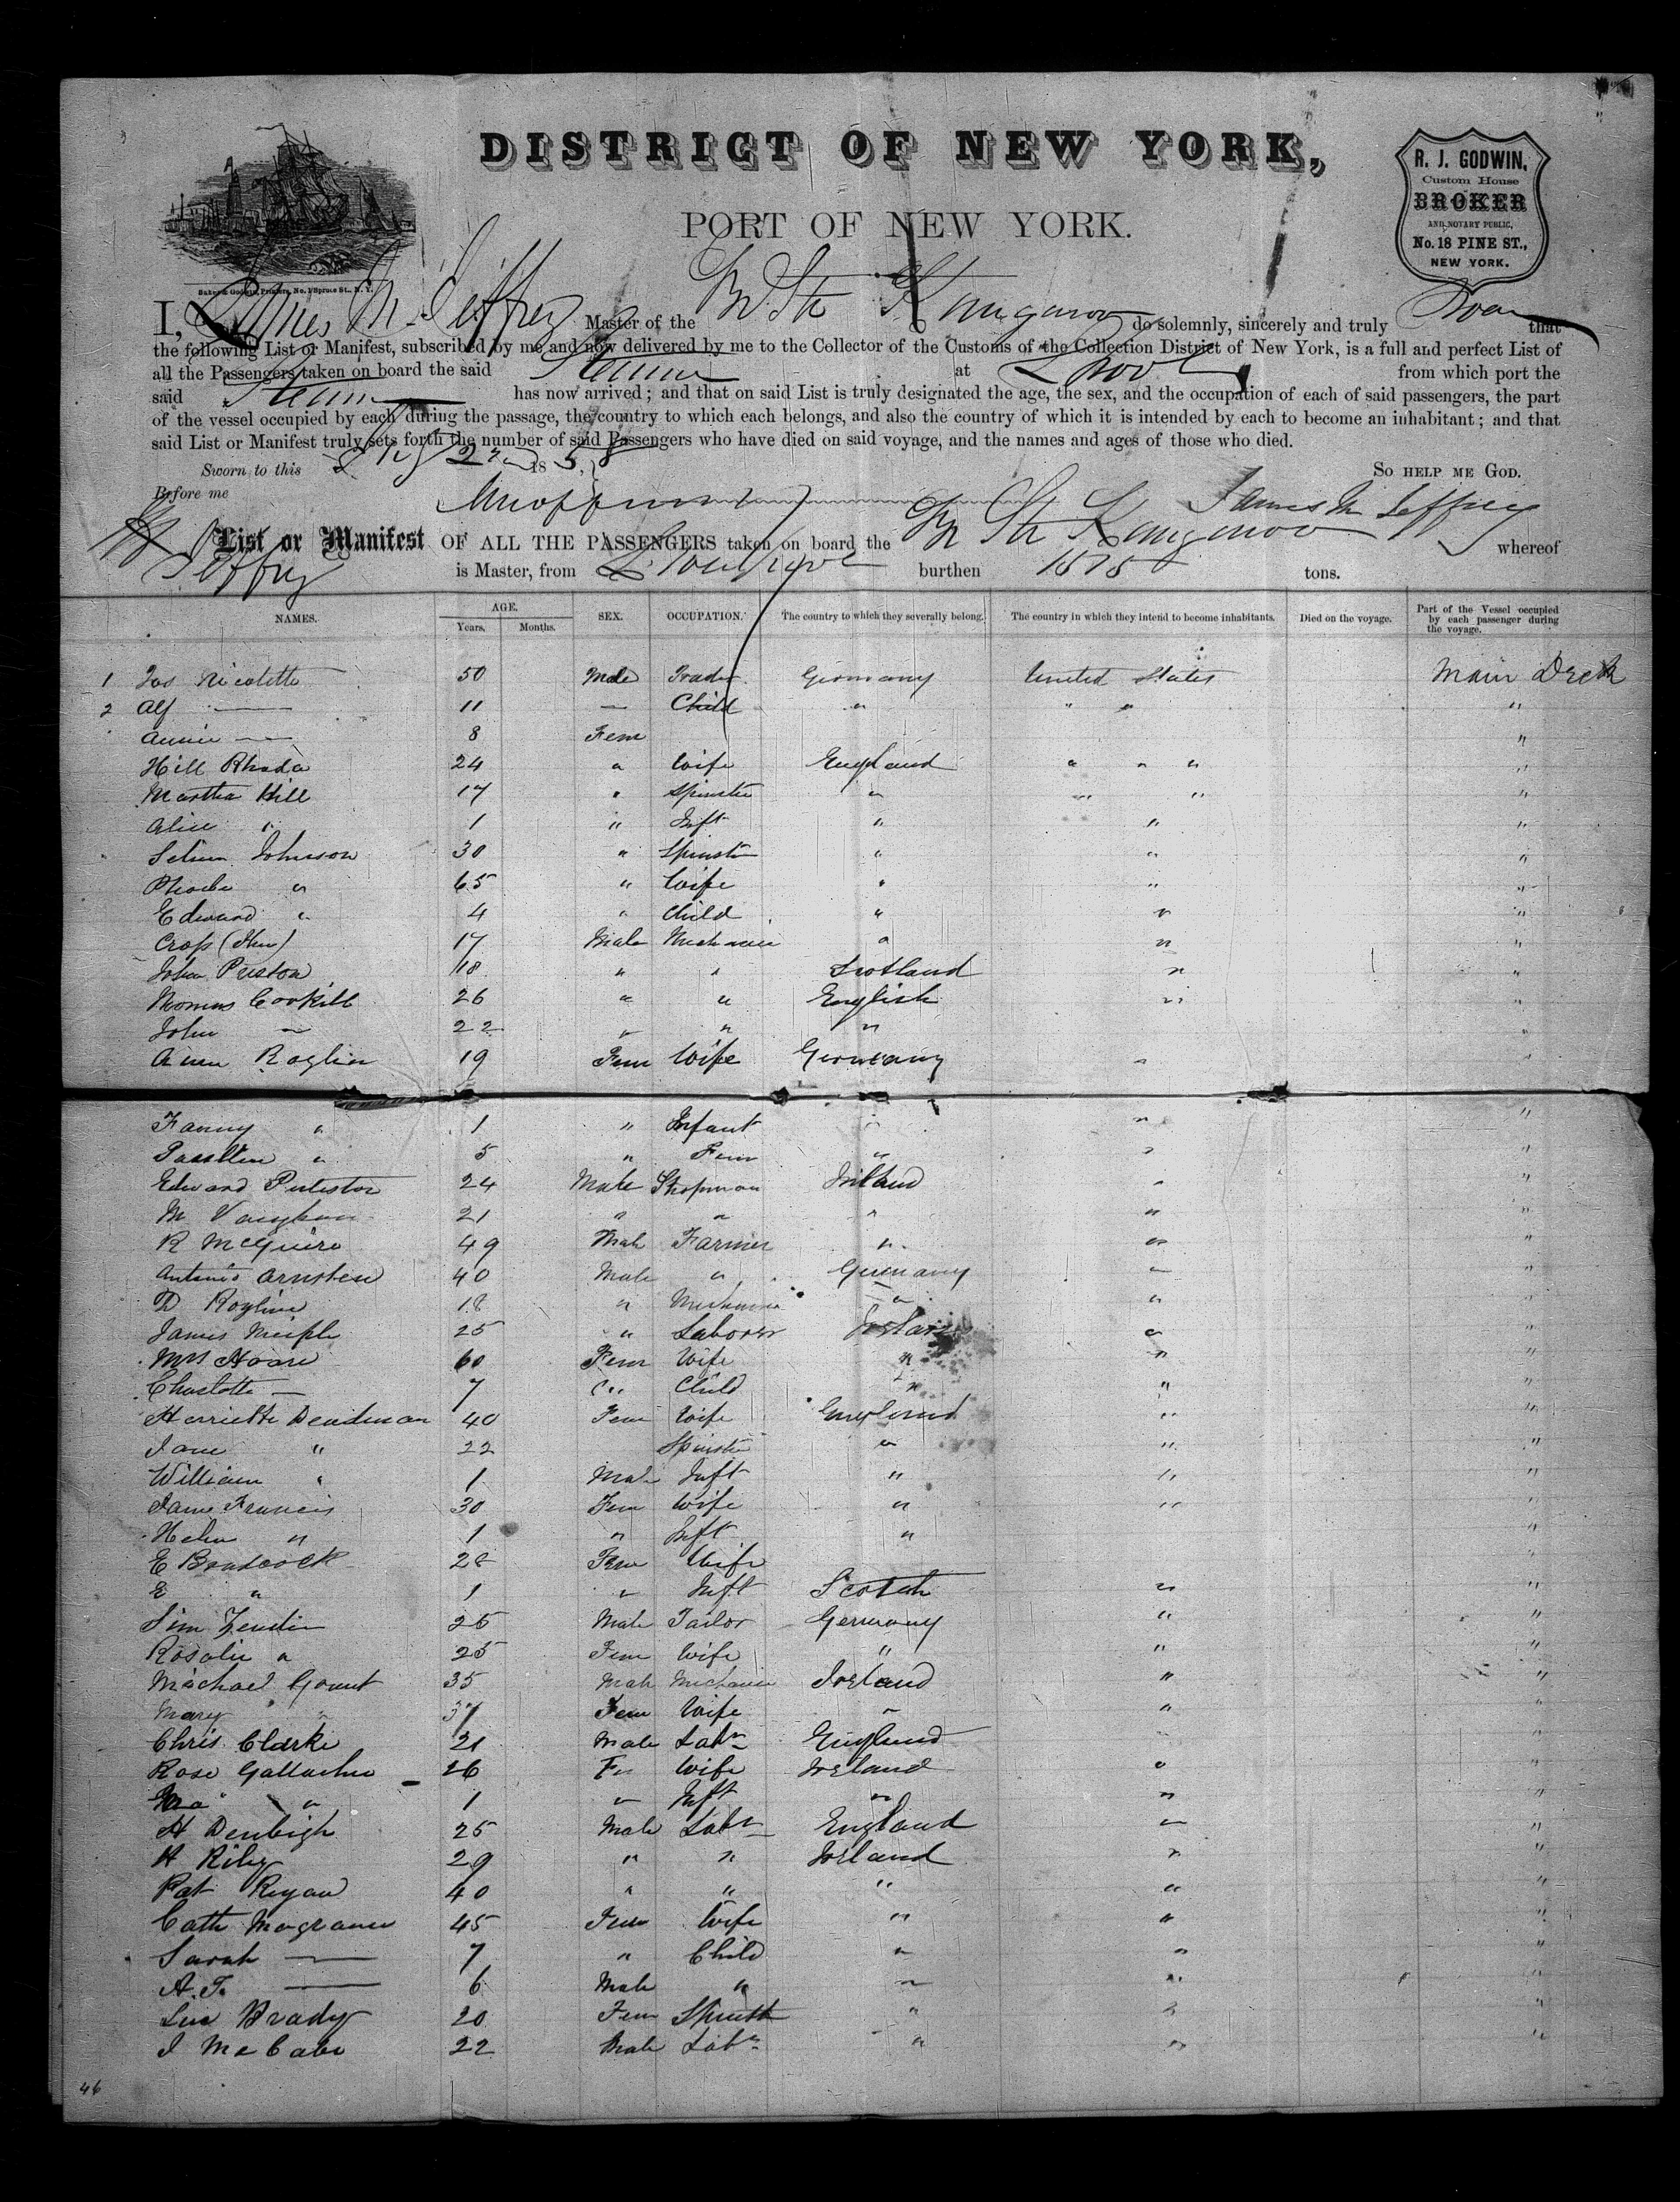 DISTRICT OF NEW YORK,
PORT OF NEW YORK.
R. J. GODWIN,
Custom House
BROKER
AND NOTARY PUBLIC,
No. 18 PINE ST.,
NEW YORK.
Baker & Godwin, Printers, No. 1 Spruce St., N. Y.
I, James M. Jeffrey Master of the Br Str Kangaroo do solemnly, sincerely and truly Swear that
the following List or Manifest, subscribed by me and now delivered by me to the Collector of the Customs of the Collection District of New York, is a full and perfect List of
all the Passengers taken on board the said Steamer at L'pool from which port the
said Steamer has now arrived; and that on said List is truly designated the age, the sex, and the occupation of each of said passengers, the part
of the vessel occupied by each during the passage, the country to which each belongs, and also the country of which it is intended by each to become an inhabitant; and that
said List or Manifest truly sets forth the number of said Passengers who have died on said voyage, and the names and ages of those who died.
Sworn to this 22 1858 SO HELP ME GOD.
Before me James M Jeffrey
List or Manifest OF ALL THE PASSENGERS taken on board the Br Str Kangaroo whereof
Jeffrey is Master, from Liverpool burthen 1575 tons.
NAMES. AGE. Years. Months. SEX. OCCUPATION. The country to which they severally belong. The country in which they intend to become inhabitants. Died on the voyage. Part of the Vessel occupied by each passenger during the voyage.
1 Jos Nicoletto 50 Male Trader Germany United States Main Deck
2 Alf — 11 — Child " " " "
Annie — 8 Fem "
Hill Rhoda 24 " Wife England " " " "
Martha Hill 17 " Spinster " " " "
Alice " 1 " Inft " " "
Johnson 30 " Spinster " " "
Phoebe " 65 " Wife " " "
Edward " 4 " Child " " "
17 Male Mechanic " " "
John Preston 18 " " Scotland " "
Thomas Corkill 26 " " English " "
John " 22 " " " " "
19 Fem Wife Germany " "
Fanny " 1 " Infant " " "
" 5 " Fem " " "
Edward 24 Male Shopman Ireland " "
M Vaughan 21 " " " " "
R McGuire 49 Male Farmer " " "
Antonio Arnsten 40 Male " Germany " "
18 " Mechanic " " "
James 25 " Laborer Ireland " "
Mrs Hoare 60 Fem Wife " " "
Charlotte — 7 " Child " " "
Harriette Dendman 40 Fem Wife England " "
Jane " 22 Spinster " " "
William " 1 Male Inft " " "
Jane Francis 30 Fem Wife " " "
Helen " 1 " Inft " "
E 28 Fem Wife "
E " 1 " Inft Scotch " "
25 Male Tailor Germany " "
Rosalie " 25 Fem Wife " " "
Michael Gount 35 Male Mechanic Ireland " "
Mary " 37 Fem Wife " " "
Chris Clarke 21 Male Labr England " "
Rose Gallagher 26 Fm Wife Ireland " "
" 1 " Inft " " "
H Denbigh 25 Male Labr England " "
H Riley 29 " " Ireland " "
Pat Ryan 40 " " " " "
Cath Magrane 45 Fem Wife " " "
Sarah — 7 " Child " " "
A. T. — 6 Male " " " "
Brady 20 Fem Spinster " " "
J McCabe 22 Male Labr " " "
46